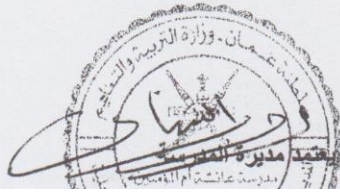 سلطنة عمان - وزارة التربية والتعليم
يعتمد مديرة المدرسة
مدرسة عائشة أم المؤمنين